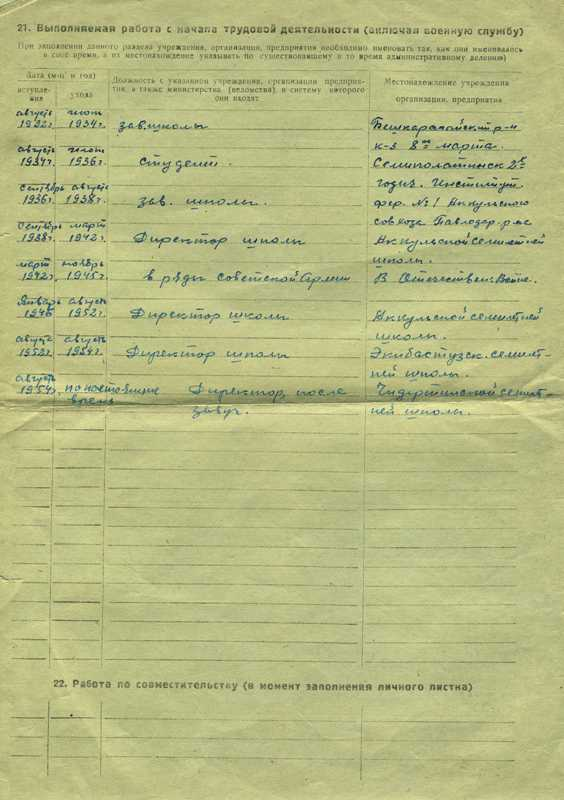 21. Выполняемая работа с начала трудовой деятельности (включая военную службу)
При заполнении данного раздела учреждения, организации, предприятия необходимо именовать так, как они именовались
в своё время, а их местонахождение указывать по существовавшему в то время административному делению)
дата (м-ц и год)
вступления
ухода
Должность с указанием учреждения, организации предприятия, а также министерства (ведомства), в систему которого они входят
Местонахождение учреждения
организации, предприятия
августь 1932г. июнь 1934г. зав. школы Бешкарагайский р-н
к-з 8ое марта.
августь 1934г. июнь 1936г. студент. Семипалатинск 2х
годиз. Институт
сентябрь 1936г. август 1938г. зав. школы. фер. №1 Аккульского
совхоза Павлодар. р-на
сентябрь 1938г. март 1942г. Директор школы Аккульской семилетней
школы.
март 1942г. ноябрь 1945г. в ряды советской Армии В Отечествен. Войне.
Январь 1946 август 1952г. Директор школы Аккульской семилетней
школы.
августь 1952г. августь 1954г. Директор школы Экибастузск. семилет-
ней школы.
августь 1954г. по настоящие время Директор, после Чидертинской семилет-
завуч. ней школы.
22. Работа по совместительству (в момент заполнения личного листка)